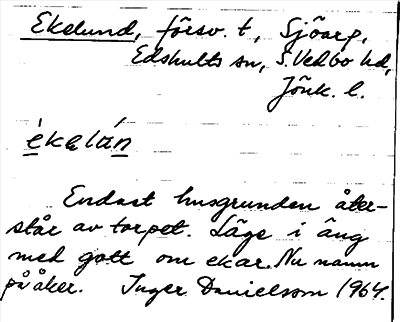 Ekelund, försv. t, Sjöarp,
Edshults sn, S. Vedbo hd,
Jönk. l.
èkalán
Endast husgrunden åter-
står av torpet. Läge i äng
med gott om ekar. Nu namn
på åker. Inger Danielsson 1964.